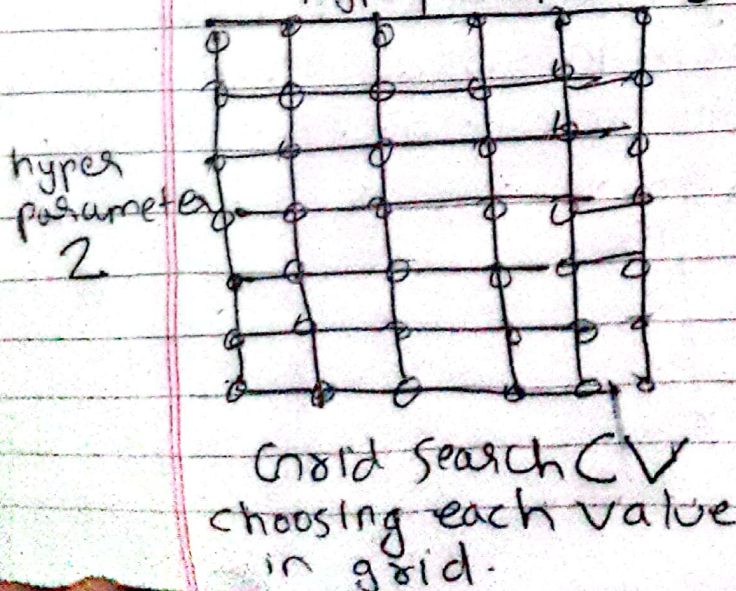 hyper
parameter
2
Grid Search CV
choosing each value
in grid.